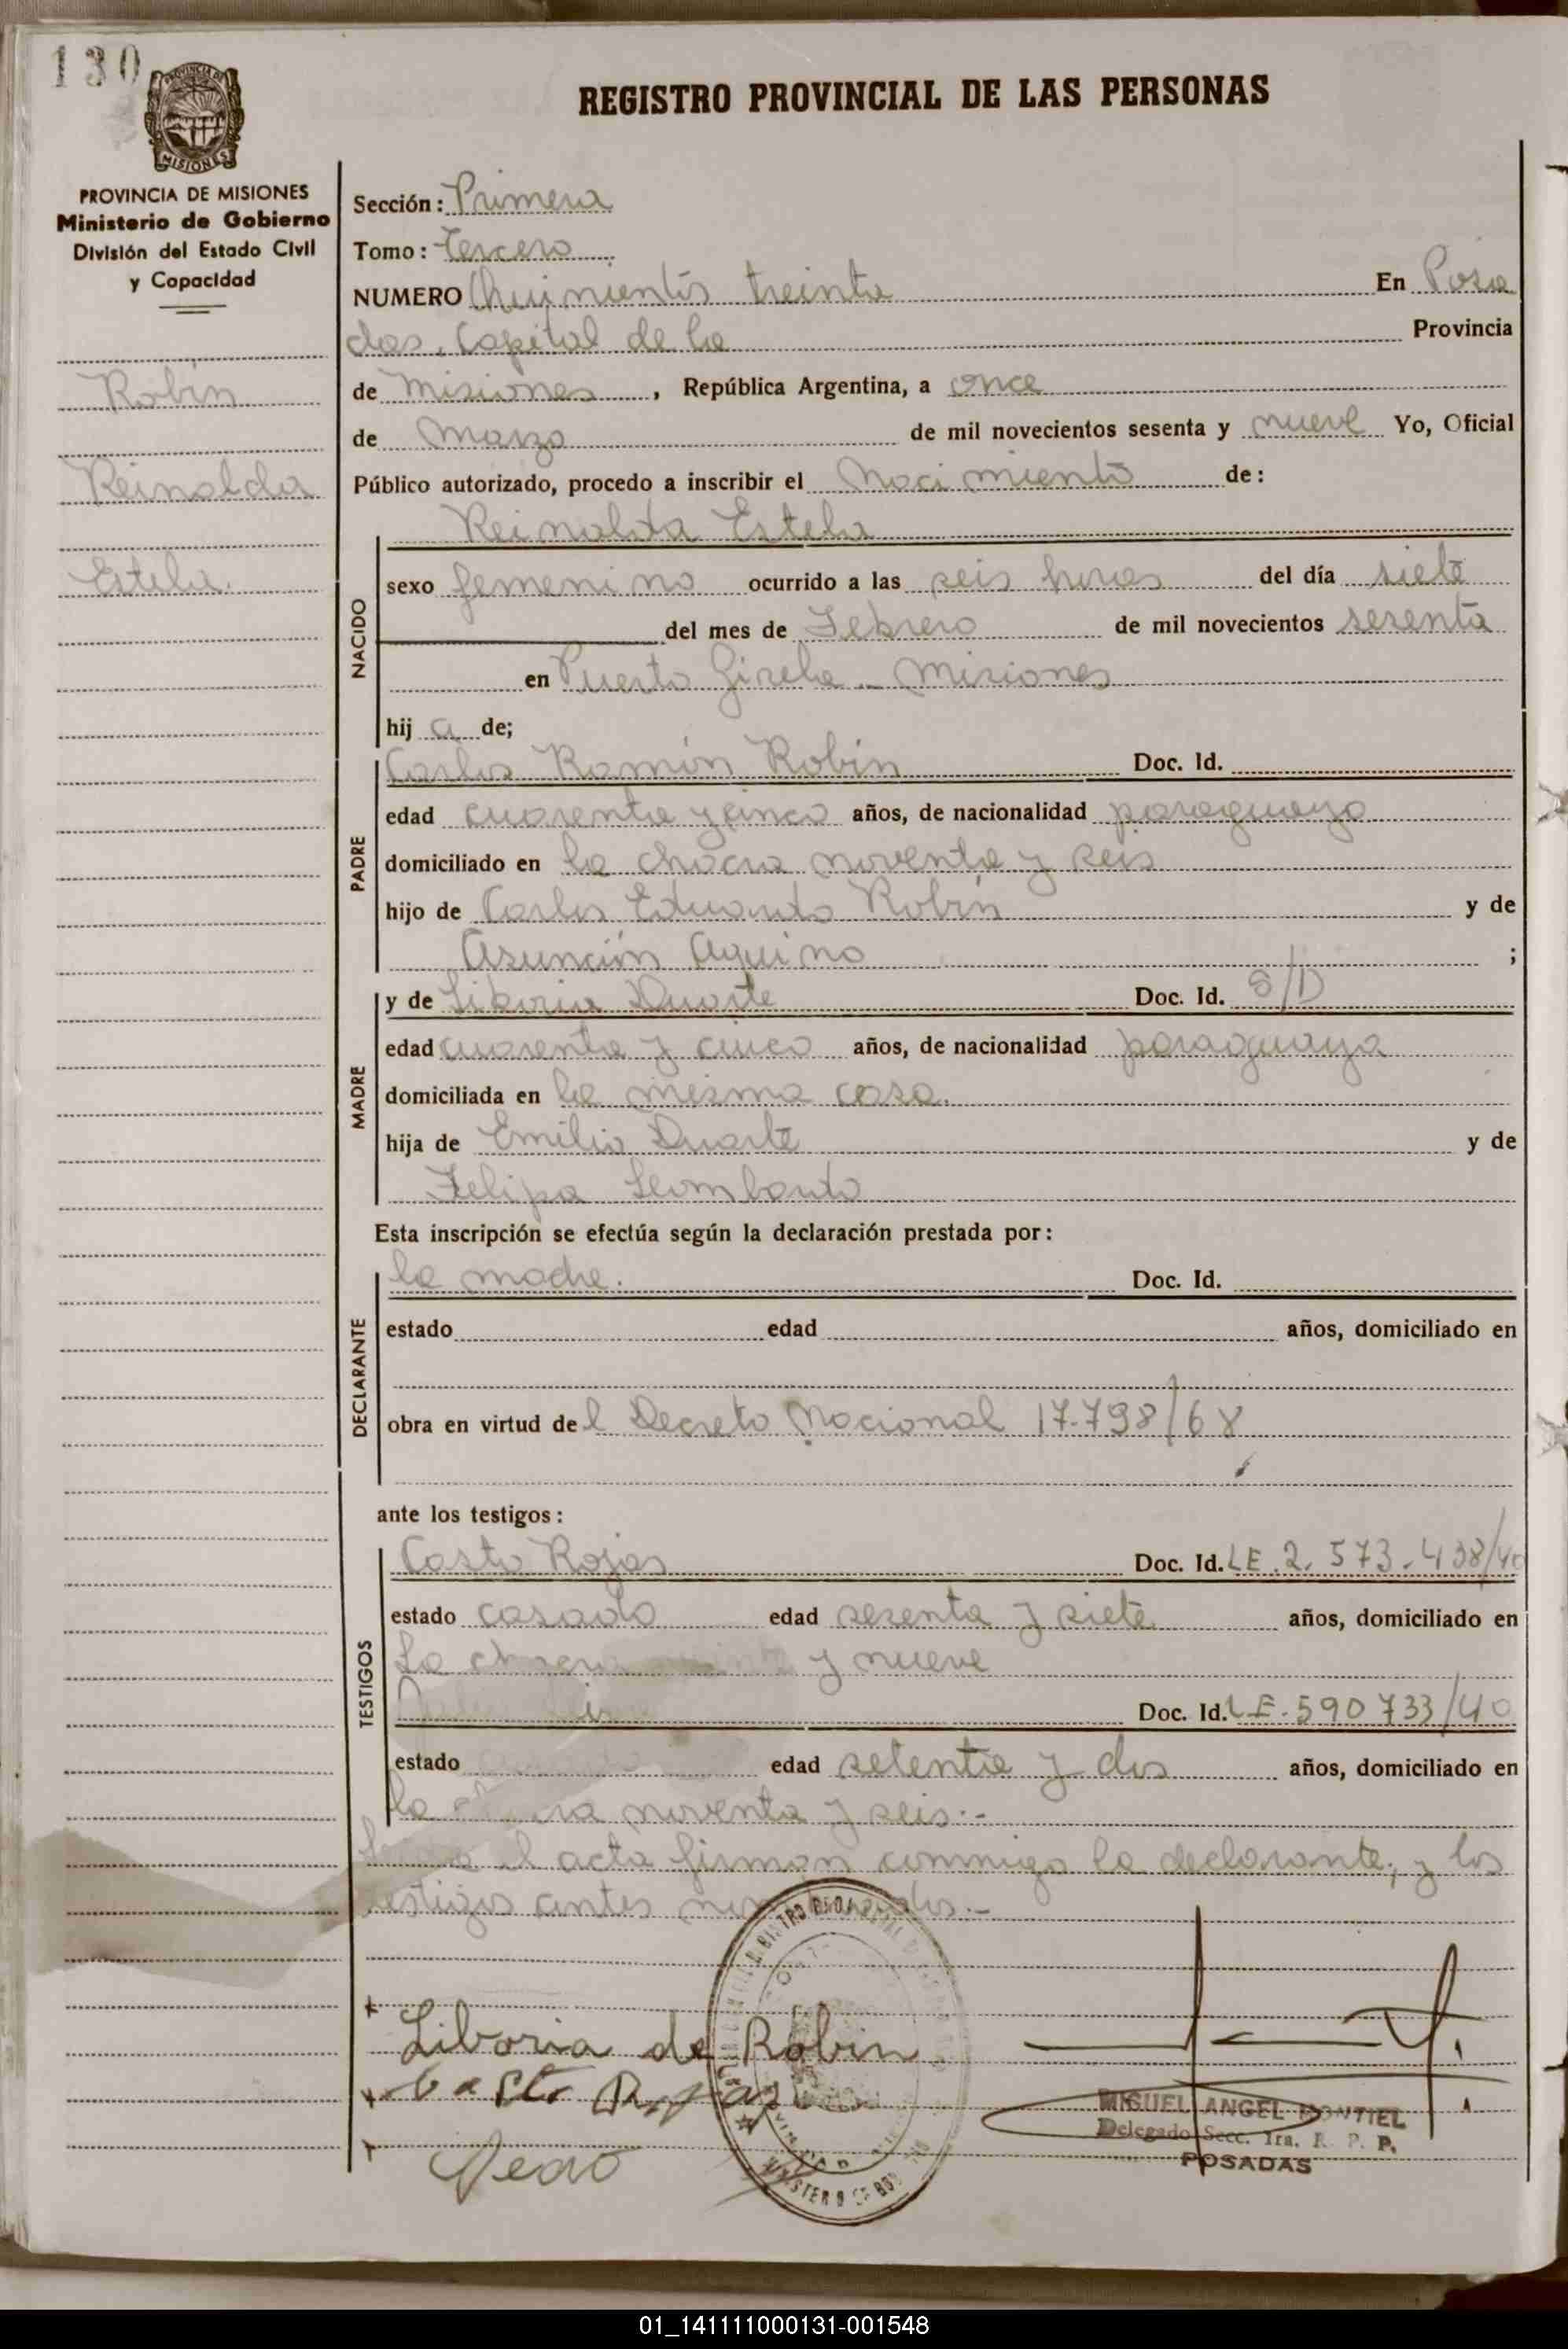 130
PROVINCIA DE
MISIONES
REGISTRO PROVINCIAL DE LAS PERSONAS
PROVINCIA DE MISIONES
Ministerio de Gobierno
División del Estado Civil
y Capacidad
Robin
Reinalda
Estela.
Sección: Primera
Tomo: tercero
NUMERO Quinientos treinta En Posa
das, Capital de la Provincia
de Misiones, República Argentina, a once
de Marzo de mil novecientos sesenta y nueve Yo, Oficial
Público autorizado, procedo a inscribir el Nacimiento de:
NACIDO
Reinalda Estela
sexo femenino ocurrido a las seis horas del día siete
del mes de Febrero de mil novecientos sesenta
en Puerto Gisela - Misiones
hij a de;
PADRE
Carlos Ramón Robin Doc. Id.
edad cuarenta y cinco años, de nacionalidad paraguayo
domiciliado en la chacra noventa y seis
hijo de Carlos Eduardo Robin y de
Asunción Aquino ;
MADRE
y de Liboria Duarte Doc. Id. S/D
edad cuarenta y cinco años, de nacionalidad paraguaya
domiciliada en la misma casa.
hija de Emilio Duarte y de
Felipa Leombardo
Esta inscripción se efectúa según la declaración prestada por:
DECLARANTE
la madre. Doc. Id.
estado edad años, domiciliado en
obra en virtud de l Decreto Nacional 17.798/68
ante los testigos:
TESTIGOS
Casto Rojas Doc. Id. LE. 2.573.438/40
estado casado edad sesenta y siete años, domiciliado en
La chacra y nueve
Doc. Id. LE. 590733/40
estado edad setenta y dos años, domiciliado en
la chacra noventa y seis.-
Leida el acta firman conmigo la declarante, y los
testigos antes nombrados.-
Liboria de Robin
Casto Rojas
MIGUEL ANGEL MONTIEL
Delegado Secc. 1ra. R. P. P.
POSADAS
01_141111000131-001548